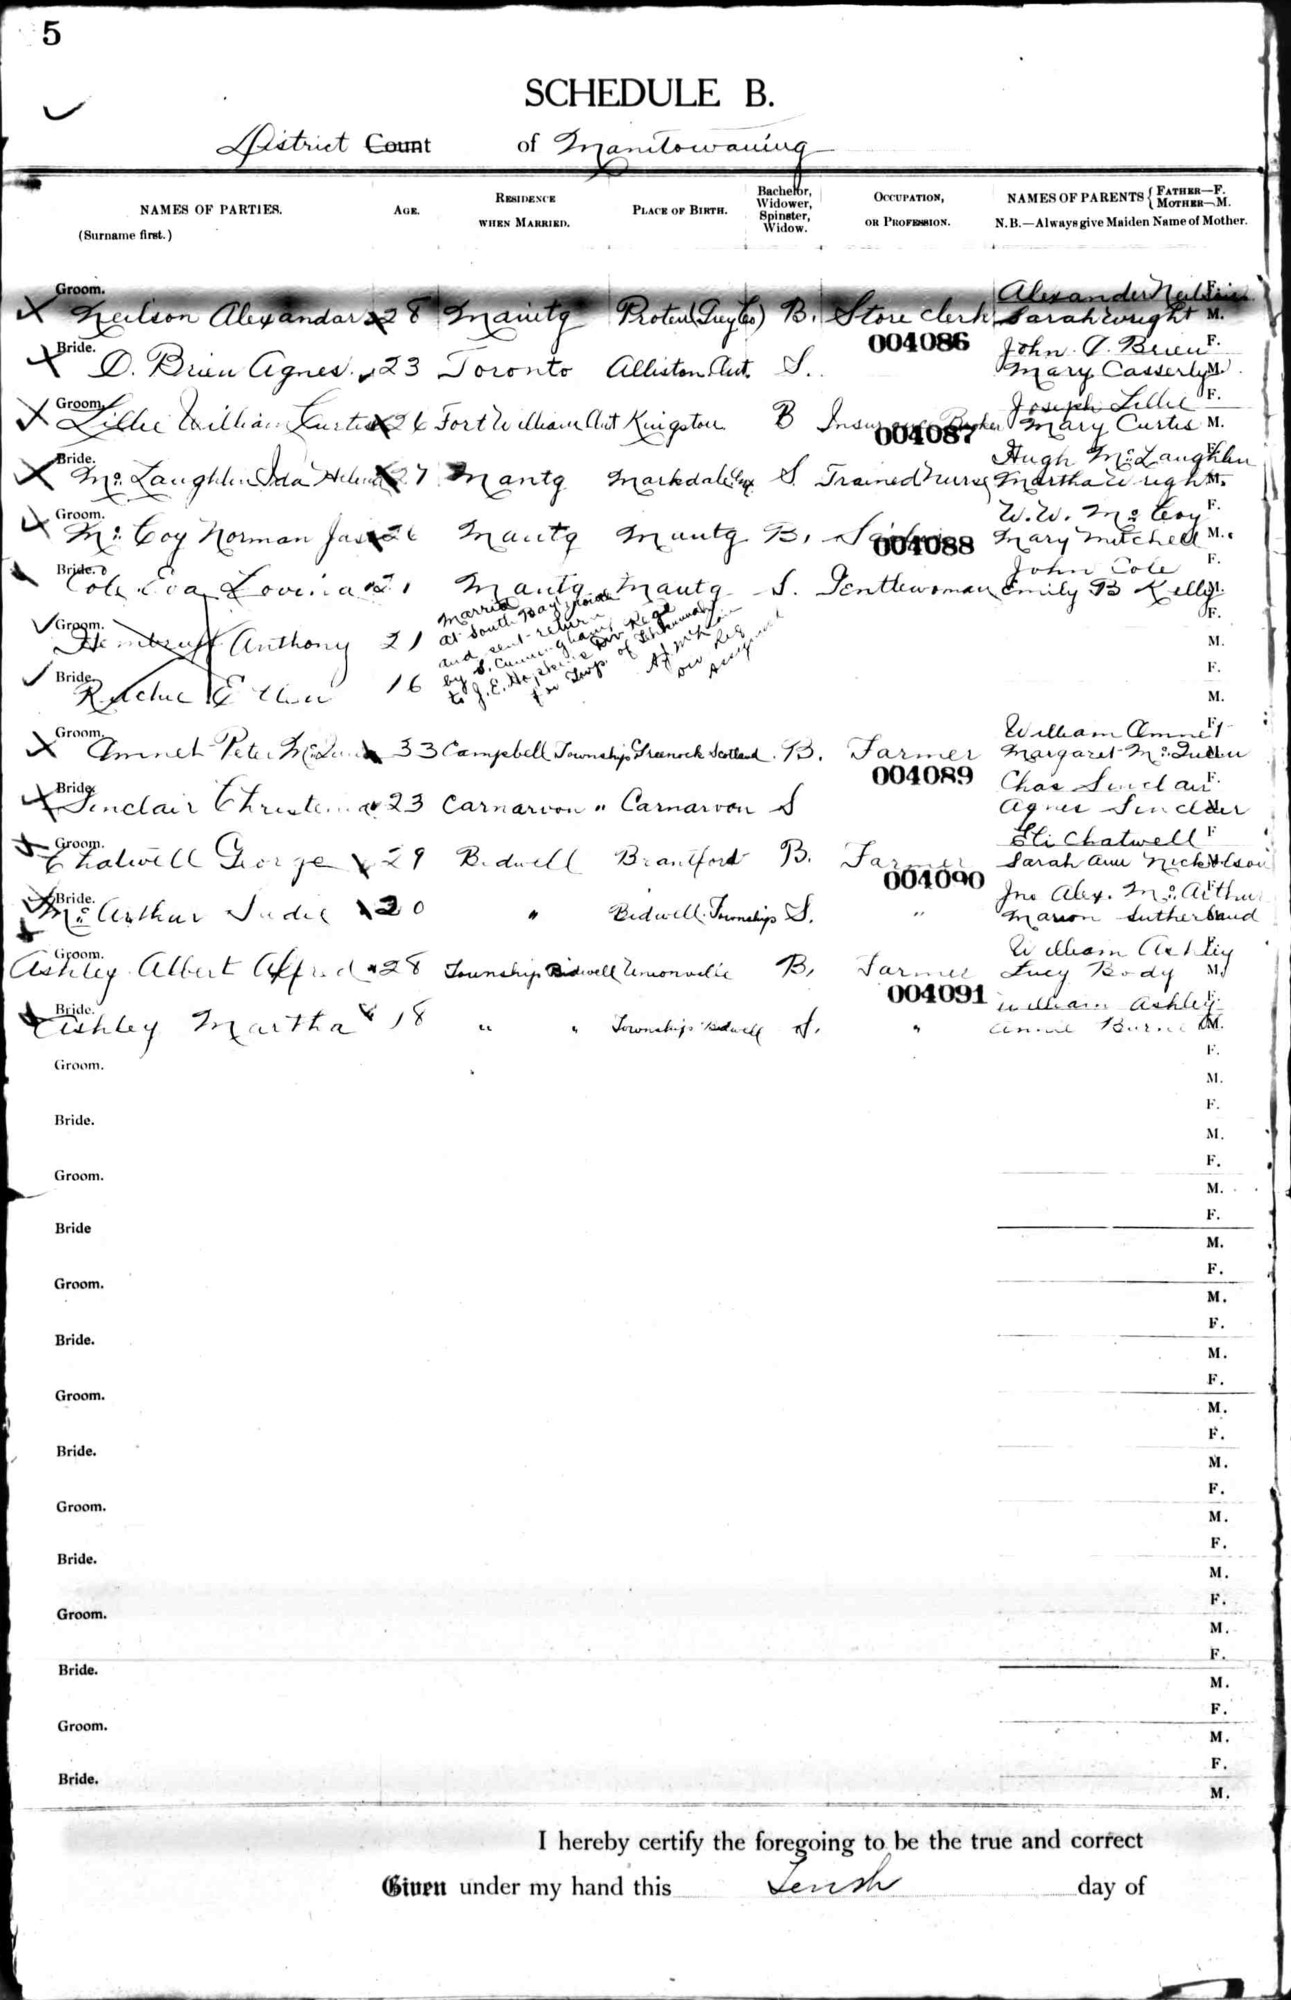 5
SCHEDULE B.
District Count of Manitowaning
NAMES OF PARTIES.
(Surname first.)
AGE.
RESIDENCE
WHEN MARRIED.
PLACE OF BIRTH.
Bachelor,
Widower,
Spinster,
Widow.
OCCUPATION,
OR PROFESSION.
NAMES OF PARENTS { FATHER—F.
MOTHER—M.
N.B.—Always give Maiden Name of Mother.
Groom. Alexander Neilson F.
Neilson Alexandar 28 Manitg Proton (Grey Co) B. Store clerk Sarah Wright M.
004086
Bride. John O. Brien F.
O. Brien Agnes. 23 Toronto Alliston Ont. S. Mary Casserly M.
Groom. Joseph Lillie F.
Lillie William Curtis 26 Fort William Ont Kingston B Insurance Broker Mary Curtis M.
004087
Bride. Hugh McLaughlin F.
McLaughlin Ida Helena 27 Mantg Markdale S Trained Nurse Martha Wright M.
Groom. W.W. McCoy F.
McCoy Norman Jas 26 Mantg Mantg B. Mary Mitchell M.
004088
Bride. John Cole F.
Cole Eva Lovina 21 Mantg Mantg S. Gentlewoman Emily B Kelly M.
Groom. F.
Anthony 21 M.
married
at South Bay
and sent return
by S. Cunningham
to J.E. Div Regr
for Twp. of
Div Reg
Bride. F.
Ritchie 16 M.
Groom. William Amnet F.
Amnet Peter McQueen 33 Campbell Township Greenock Scotland B. Farmer Margaret McQueen M.
004089
Bride. Chas Sinclair F.
Sinclair Christena 23 Carnarvon " Carnarvon S Agnes Sinclair M.
Groom. Eli Chatwell F
Chatwell George 29 Bidwell Brantford B. Farmer Sarah Ann Nicholson M.
004090
Bride. Jno Alex. McArthur F.
McArthur Sudie 20 " Bidwell Township S. " Marion Sutherland M.
Groom. William Ashley F.
Ashley Albert Alfred 28 Township Bidwell Unionville B. Farmer Lucy Body M.
004091
Bride. William Ashley F.
Ashley Martha 18 " " Township Bidwell S. " Annie M.
Groom. F.
M.
Bride. F.
M.
Groom. F.
M.
Bride F.
M.
Groom. F.
M.
Bride. F.
M.
Groom. F.
M.
Bride. F.
M.
Groom. F.
M.
Bride. F.
M.
Groom. F.
M.
Bride. F.
M.
Groom. F.
M.
Bride. F.
M.
I hereby certify the foregoing to be the true and correct
Given under my hand this Tenth day of